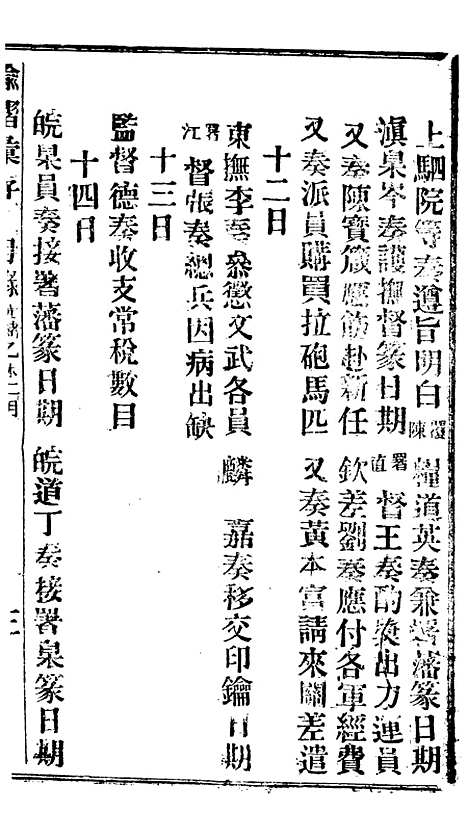 上駟院等奏遵旨明白覆陳 糧道英奏兼署藩篆日期
滇臬岑奏護撫督篆日期 署直督王奏酌獎出力運員
又奏陳寶箴應飭赴新任 欽差劉奏應付各軍經費
又奏派員購買拉砲馬匹 又奏黃本富請來關差遣
十二日
東撫李奏叅懲文武各員 麟 嘉奏移交印鑰日期
署江督張奏總兵因病出缺
十三日
監督德奏收支常稅數目
十四日
皖臬員奏接署藩篆日期 皖道丁奏接署臬篆日期
諭摺彙存 乙未二月 三